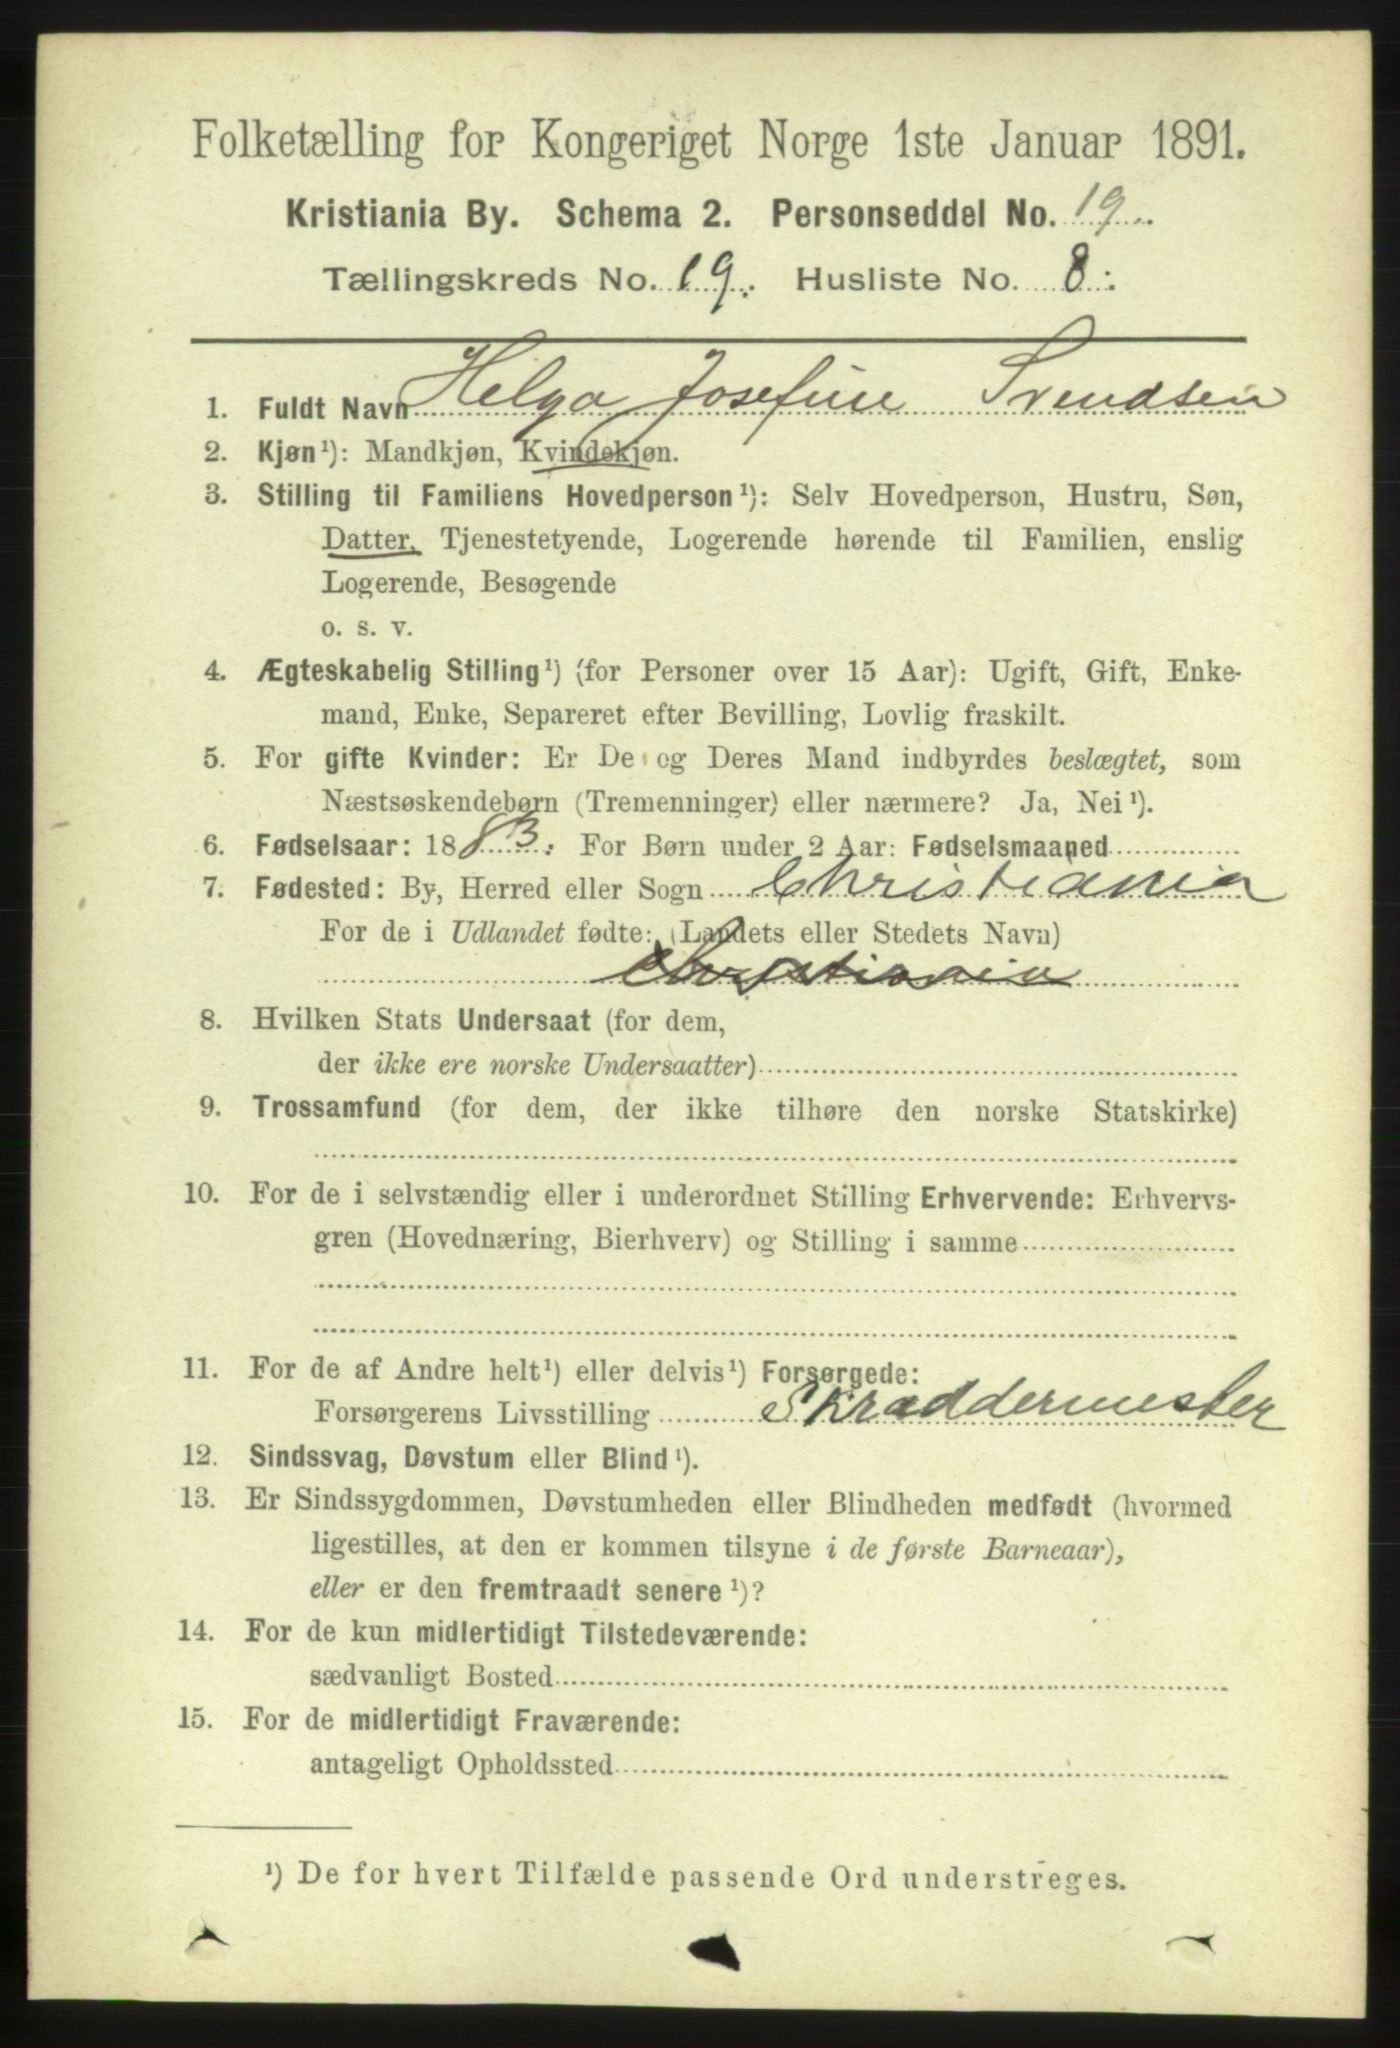 Folketælling for Kongeriget Norge 1ste Januar 1891.
Kristiania By. Schema 2. Personseddel No. 19.
Tællingskreds No. 19. Husliste No. 8.
1. Fuldt Navn Helga Josefine Svendsen
2. Kjøn¹): Mandkjøn, Kvindekjøn.
3. Stilling til Familiens Hovedperson¹): Selv Hovedperson, Hustru, Søn,
Datter, Tjenestetyende, Logerende hørende til Familien, enslig
Logerende, Besøgende
o. s. v.
4. Ægteskabelig Stilling¹) (for Personer over 15 Aar): Ugift, Gift, Enke-
mand, Enke, Separeret efter Bevilling, Lovlig fraskilt.
5. For gifte Kvinder: Er De og Deres Mand indbyrdes beslægtet, som
Næstsøskendebørn (Tremenninger) eller nærmere? Ja, Nei¹).
6. Fødselsaar: 1883. For Børn under 2 Aar: Fødselsmaaned
7. Fødested: By, Herred eller Sogn Christiania
For de i Udlandet fødte: (Landets eller Stedets Navn)
Christiania
8. Hvilken Stats Undersaat (for dem,
der ikke ere norske Undersaatter)
9. Trossamfund (for dem, der ikke tilhøre den norske Statskirke)
10. For de i selvstændig eller i underordnet Stilling Erhvervende: Erhvervs-
gren (Hovednæring, Bierhverv) og Stilling i samme
11. For de af Andre helt¹) eller delvis¹) Forsørgede:
Forsørgerens Livsstilling Skræddermester
12. Sindssvag, Døvstum eller Blind¹).
13. Er Sindssygdommen, Døvstumheden eller Blindheden medfødt (hvormed
ligestilles, at den er kommen tilsyne i de første Barneaar),
eller er den fremtraadt senere¹)?
14. For de kun midlertidigt Tilstedeværende:
sædvanligt Bosted
15. For de midlertidigt Fraværende:
antageligt Opholdssted
¹) De for hvert Tilfælde passende Ord understreges.